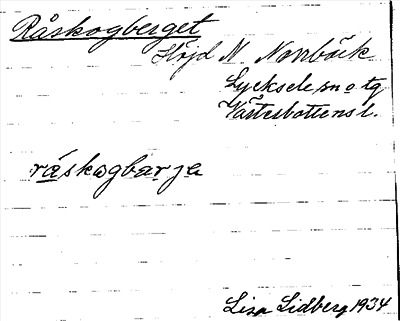 Råskogberget
Höjd N. Norrbäck
Lycksele sn o tg
Västerbottens l.
råskogbarja
Lisa Lidberg 1934